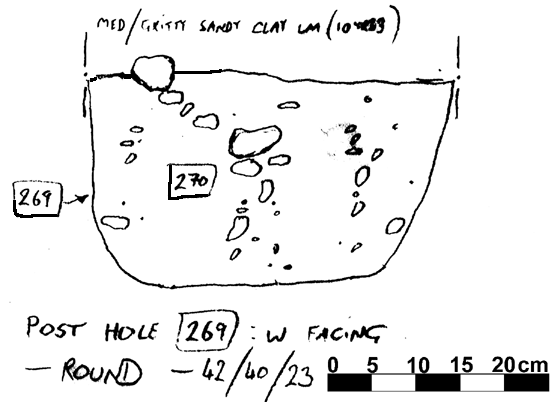 MED/GRITTY SANDY CLAY LM (10YR33)
270
269
POST HOLE 269 : W FACING
— ROUND — 42/40/23
0 5 10 15 20cm